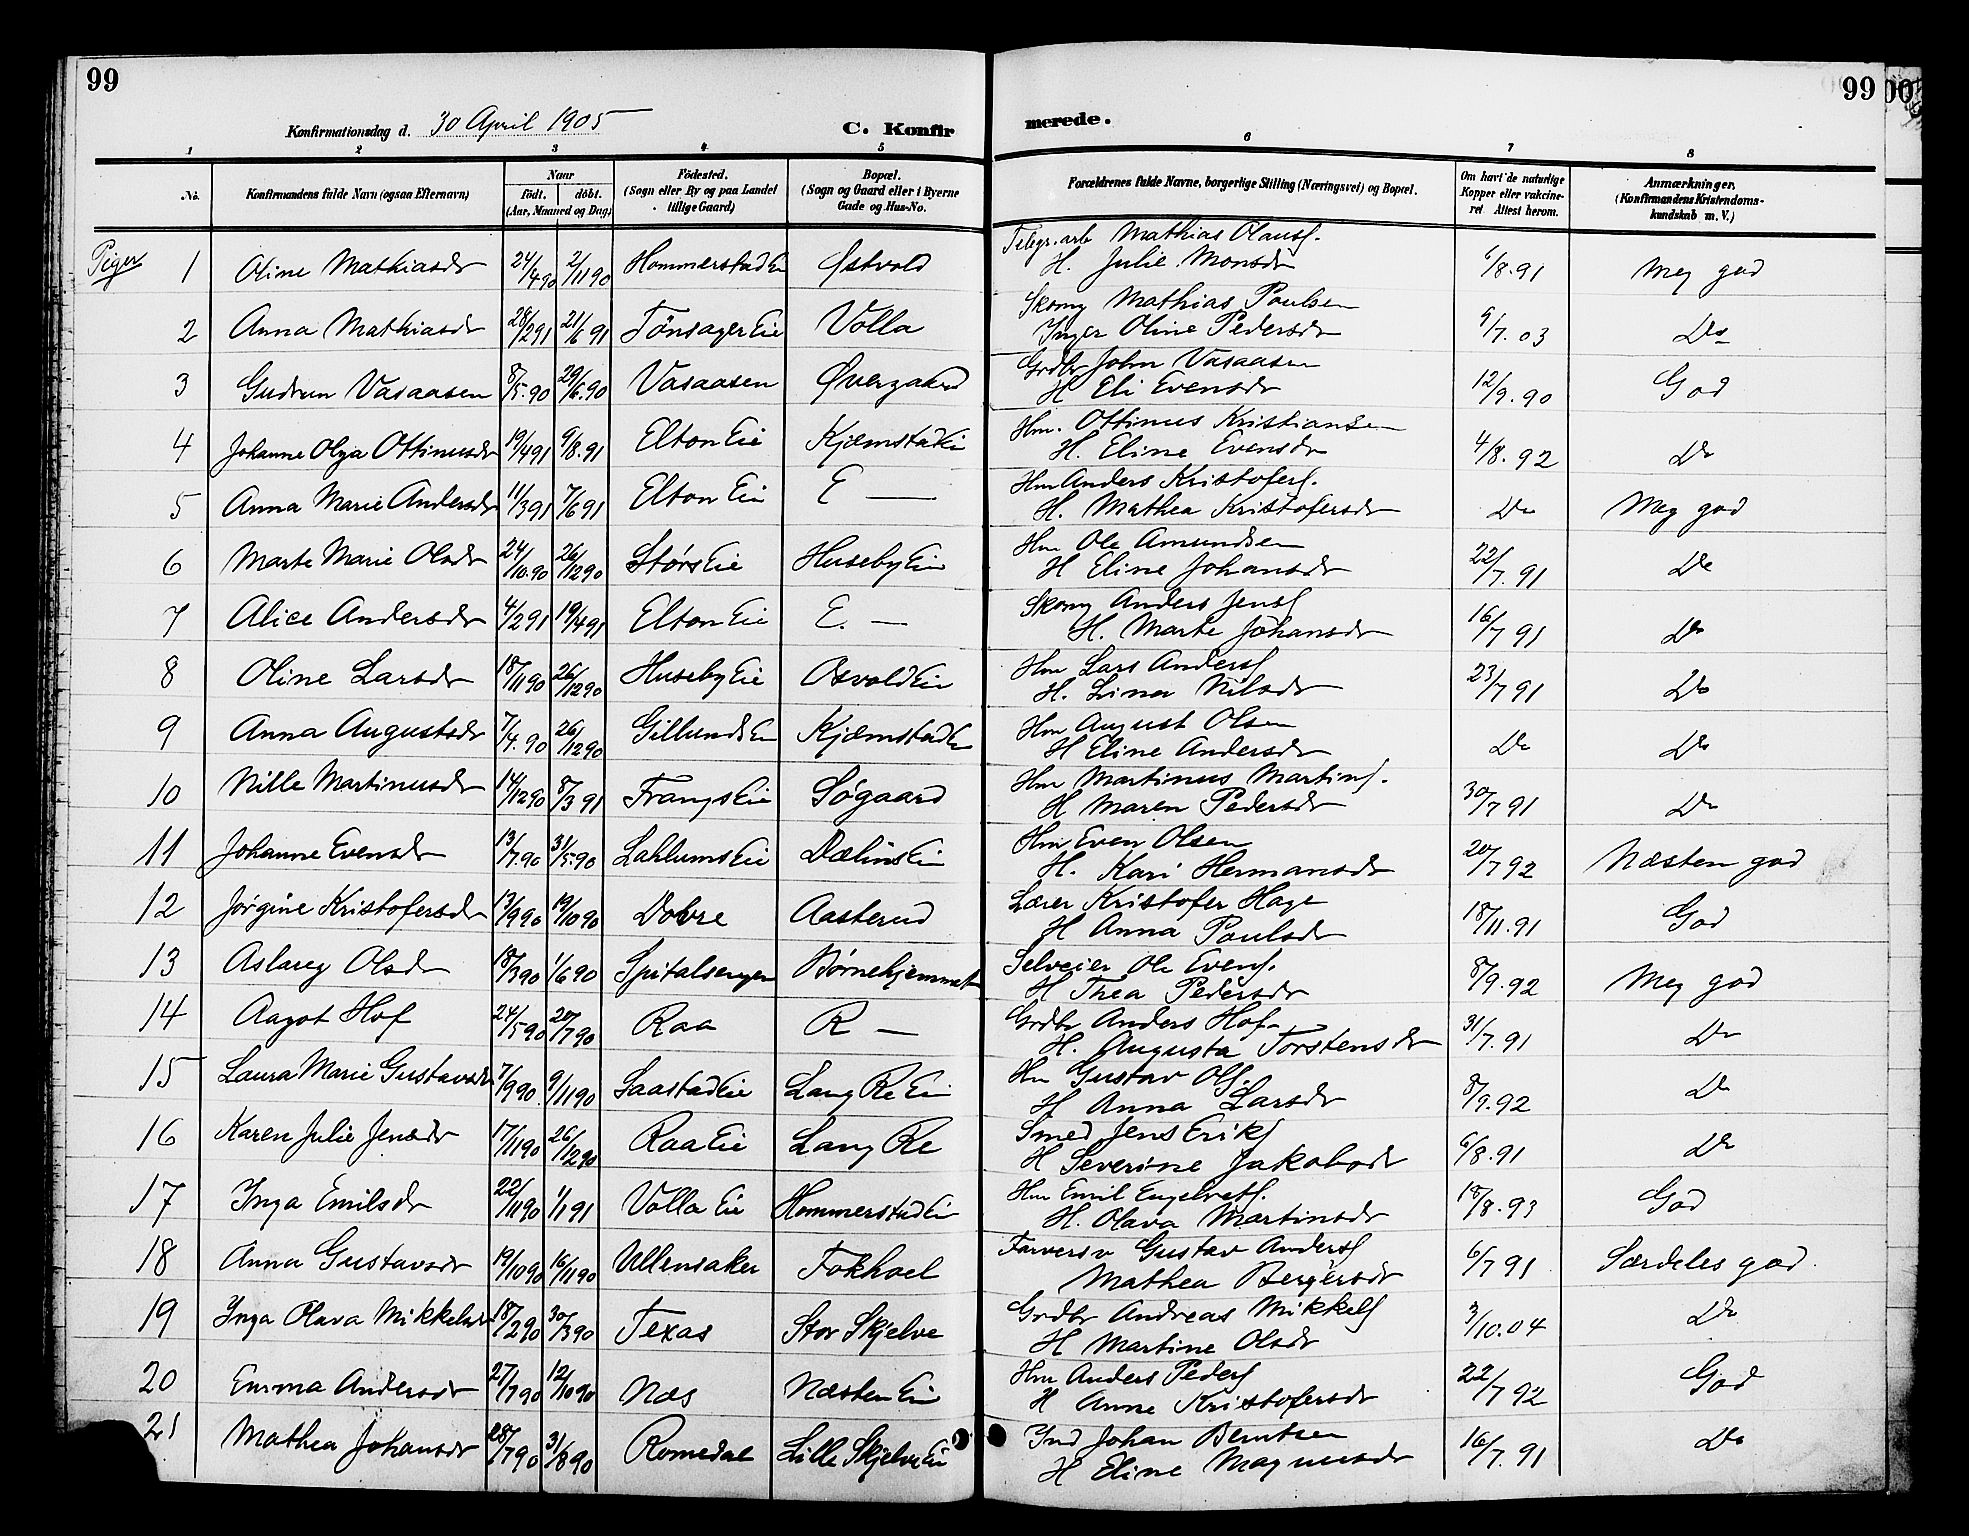 99
99
Konfirmationsdag d. 30 April 1905
C. Konfir
merede.
1 2 3 4 5 6 7 8
No.
Konfirmandens fulde Navn (ogsaa Efternavn)
Naar
født. døbt.
(Aar, Maaned og Dag)
Fødested.
(Sogn eller By og paa Landet
tillige Gaard)
Bopæl.
(Sogn og Gaard eller i Byerne
Gade og Hus-No.
Forældrenes fulde Navne, borgerlige Stilling (Næringsvei) og Bopæl.
Om havt de naturlige
Kopper eller vakcine-
ret Attest herom.
Anmærkninger,
(Konfirmandens Kristendoms-
kundskab m. V.)
Piger
Telegr. arb Mathias Olauss.
1 Oline Mathiasdr 24/4 90 2/11 90 Hommerstad Ei Østvold H. Julie Monsdr 6/8.91 Meg god
Skomg Mathias Poulsen
2 Anna Mathiasdr 28/2 91 21/6 91 Tønsager Eie Volla Inger Oline Pedersdr 9/7.03 Do
Grdbr John Vasaasen
3 Gudrun Vasaasen 8/5.90 29/6.90 Vasaasen Øvergaard H Eli Evensdr 12/9.90 God
Hm. Ottinus Kristiansen
4 Johanne Olga Ottinusdr 19/4 91 9/8.91 Elton Eie Kjæmstad Ei H. Eline Evensdr 4/8.92 Do
Hm Anders Kristofers.
5 Anna Marie Andersdr 11/3 91 7/6 91 Elton Ei E — H. Mathea Kristofersdr Do Meg god
Hm Ole Amundsen
6 Marte Marie Olsdr 24/10.90 26/12 90 Størs Eie Huseby Ei H Eline Johansdr 22/7.91 Do
Skomg Anders Jens
7 Alice Andersdr 4/2 91 19/4 91 Elton Eie E. — H. Marte Johansdr 16/7 91 Do
Hm Lars Anders
8 Oline Larsdr 18/11 90 26/12 90 Huseby Eie Osvold Ei H. Lina Nilsdr 23/7 91 Do
Hm August Olsen
9 Anna Augustsdr 7/4.90 26/12 90 Gillunds Ei Kjæmstad Ei H Eline Andersdr Do Do
Hm Martinus Martins.
10 Nille Martinusdr 14/12 90 8/3 91 Frangs Eie Søgaard H Maren Pedersdr 30/7 91 Do
Hm Even Olsen
11 Johanne Evensdr 13/7.90 31/5.90 Lahlums Eie Dælins Ei H. Kari Hermansdr 20/7 92 Næsten god
Lærer Kristofer Hage
12 Jørgine Kristofersdr 13/9 90 19/10 90 Dovre Aasterud H Anna Poulsdr 18/11.91 God
Selveier Ole Evens.
13 Aslaug Olsdr 18/3 90 1/6 90 Spitalsengen Børnehjemmet H Thea Pedersdr 8/9.92 Meg god
Grdbr Anders Hof
14 Aagot Hof 24/5 90 20/7 90 Raa R — H. Augusta Torstensdr 31/7.91 Do
Hm Gustav Ols.
15 Laura Marie Gustavsdr 7/9 90 9/11 90 Saastad Eie Lang Re Ei H Anna Larsdr 8/9.92 Do
Smed Jens Eriks
16 Karen Julie Jensdr 17/11 90 26/12 90 Raa Eie Lang Re H Severine Jakobsdr 6/8.91 Do
Hm Emil Engelrets.
17 Inga Emilsdr 22/11 90 1/1 91 Volla Eie Hommerstad Ei H. Olava Martinsdr 18/8.93 God
Farversv Gustav Anders
18 Anna Gustavsdr 19/10 90 16/11 90 Ullensaker Fokhoel Mathea Bergersdr 6/7 91 Særdeles god.
Grdbr Andreas Mikkels
19 Inga Olava Mikkelsdr 18/2 90 30/3 90 Texas Stor Skjelve H Martine Olsdr 3/10.04 Do
Hm Anders Peders
20 Emma Andersdr 27/7 90 12/10 90 Næs Næsten Ei H Anne Kristofersdr 22/7 92 God
Ind Johan Berntsen
21 Mathea Johansdr 28/7 90 31/8 90 Romedal Lille Skjelve Ei H Eline Magnusdr 16/7.91 Do